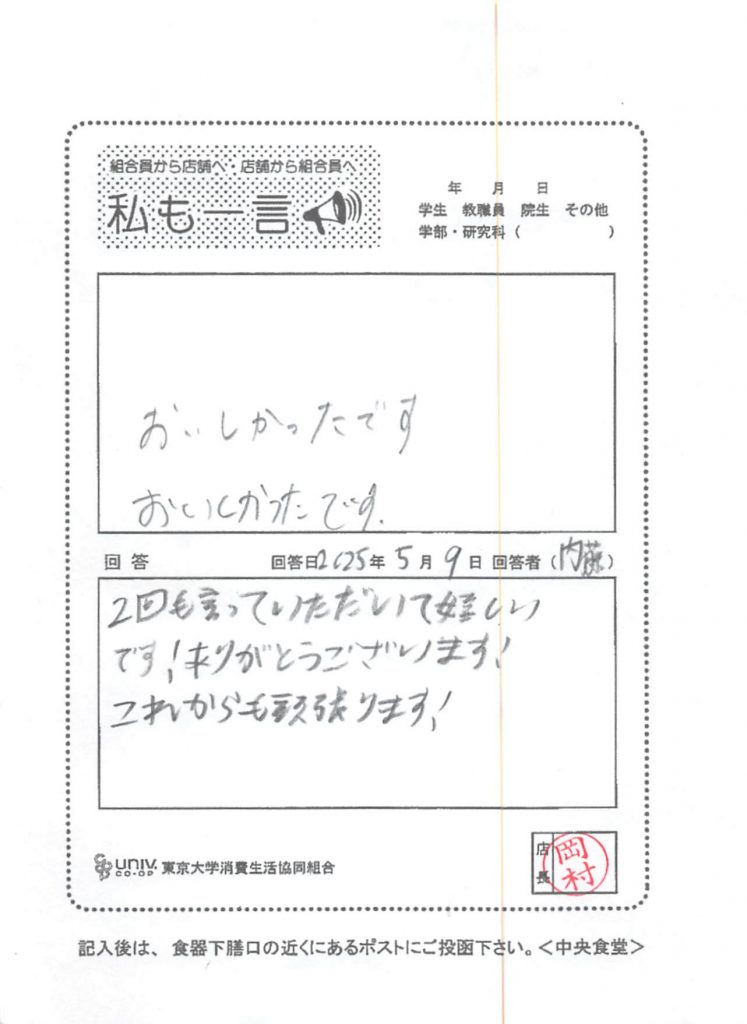 組合員から店舗へ・店舗から組合員へ
私も一言
年 月 日
学生 教職員 院生 その他
学部・研究科（ ）
おいしかったです
おいしかったです.
回答 回答日2025年5月9日 回答者（内藤）
2回も言っていただいて嬉しい
です!ありがとうございます!
これからも頑張ります!
UNIV. CO-OP 東京大学消費生活協同組合
店長 岡村
記入後は、食器下膳口の近くにあるポストにご投函下さい。＜中央食堂＞